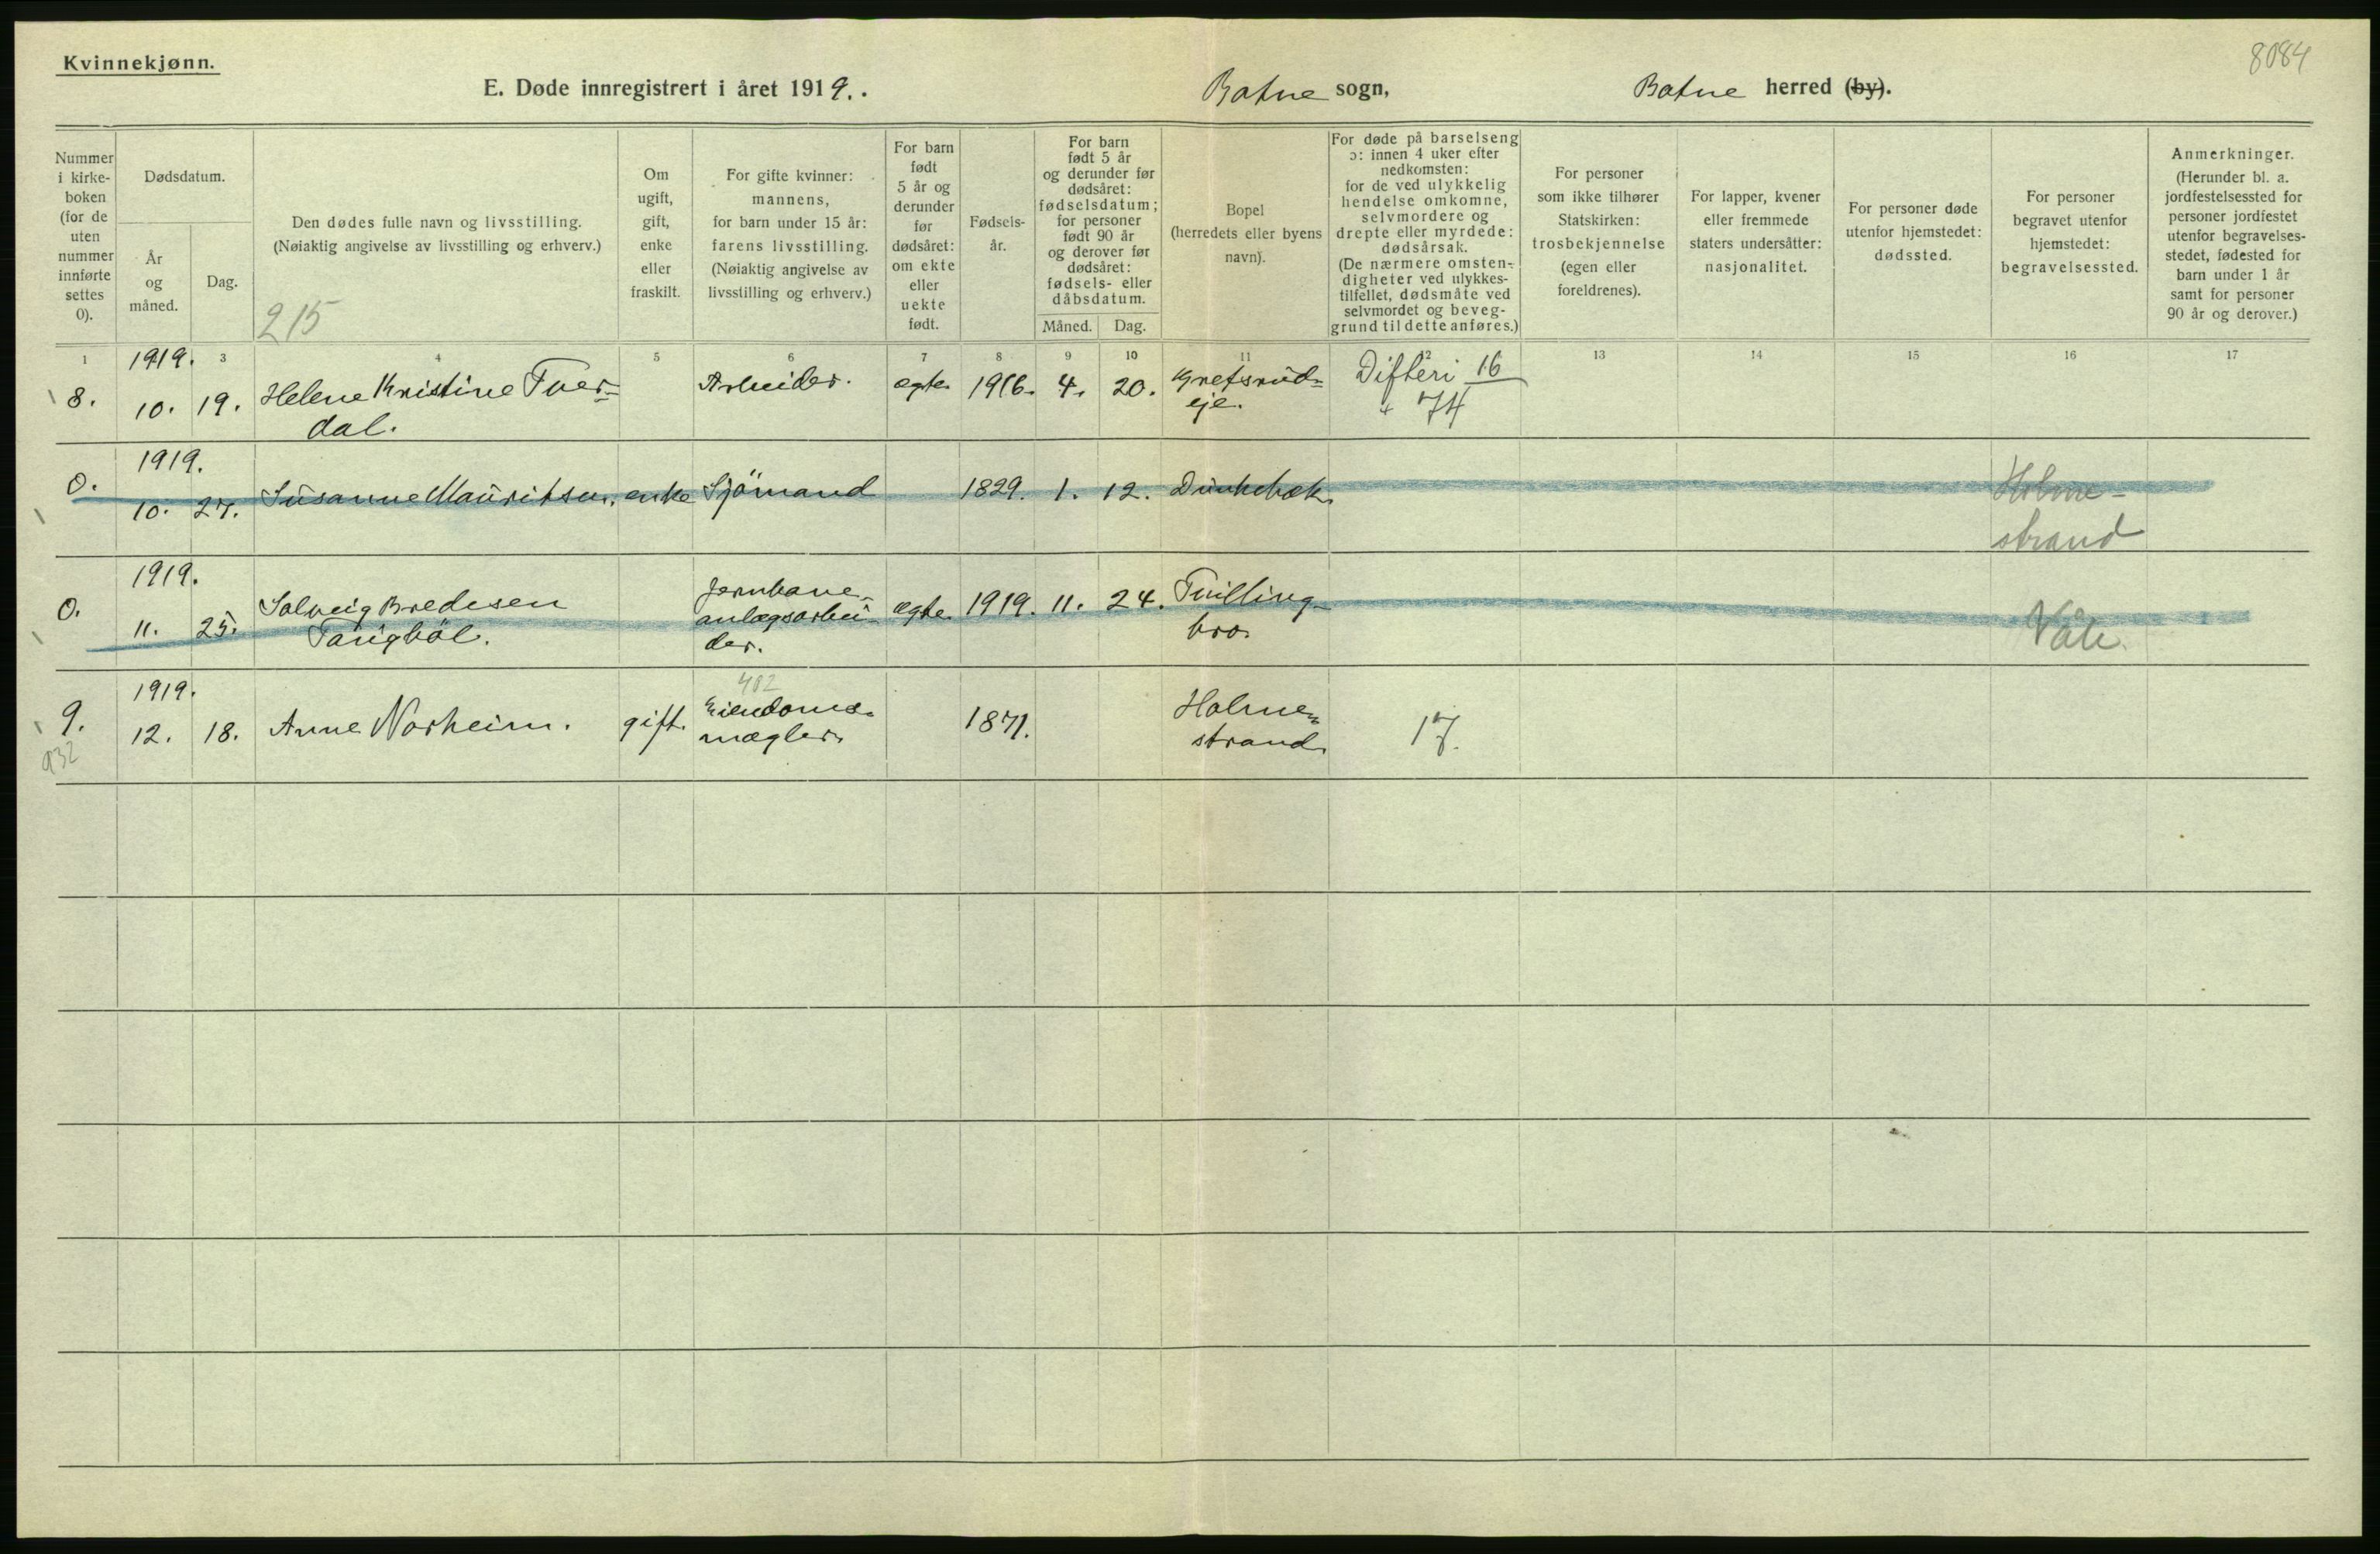 Kvinnekjønn.
8084
E. Døde innregistrert i året 1919. .
Botne sogn,
Botne herred (by).
Nummer
i kirke-
boken
(for de
uten
nummer
innførte
settes
0).
Dødsdatum.
År
og
måned.
Dag.
Den dødes fulle navn og livsstilling.
(Nøiaktig angivelse av livsstilling og erhverv.)
215
Om
ugift,
gift,
enke
eller
fraskilt.
For gifte kvinner:
mannens,
for barn under 15 år:
farens livsstilling.
(Nøiaktig angivelse av
livsstilling og erhverv.)
For barn
født
5 år og
derunder
før
dødsåret:
om ekte
eller
uekte
født.
Fødsels-
år.
For barn
født 5 år
og derunder før
dødsåret:
fødselsdatum;
for personer
født 90 år
og derover før
dødsåret:
fødsels- eller
dåbsdatum.
Måned. Dag.
Bopel
(herredets eller byens
navn).
For døde på barselseng
ɔ: innen 4 uker efter
nedkomsten:
for de ved ulykkelig
hendelse omkomne,
selvmordere og
drepte eller myrdede:
dødsårsak.
(De nærmere omsten-
digheter ved ulykkes-
tilfellet, dødsmåte ved
selvmordet og beveg-
grund til dette anføres.)
For personer
som ikke tilhører
Statskirken:
trosbekjennelse
(egen eller
foreldrenes).
For lapper, kvener
eller fremmede
staters undersåtter:
nasjonalitet.
For personer døde
utenfor hjemstedet:
dødssted.
For personer
begravet utenfor
hjemstedet:
begravelsessted.
Anmerkninger.
(Herunder bl. a.
jordfestelsessted for
personer jordfestet
utenfor begravelses-
stedet, fødested for
barn under 1 år
samt for personer
90 år og derover.)
1 3 4 5 6 7 8 9 10 11 12 13 14 15 16 17
1919.
8. 10. 19. Helene Kristine Tver-
dal.
Arbeider. ægte. 1916. 4. 20. Gretsrud-
eje.
Difteri 16
74
1919.
0. 10. 27. Susanne Mauritsen. enke Sjömand 1829. 1. 12. Dunkebæk.
Holme-
strand
1919.
0. 11. 25. Solveig Bredesen
Taugböl.
Jernbane-
anlægsarbei-
der.
ægte. 1919. 11. 24. Tvilling-
bro.
Våle.
1919.
9. 12. 18. Anne Norheim. gift.
402
Eiendoms-
mægler.
1871. Holme-
strand.
17.
932